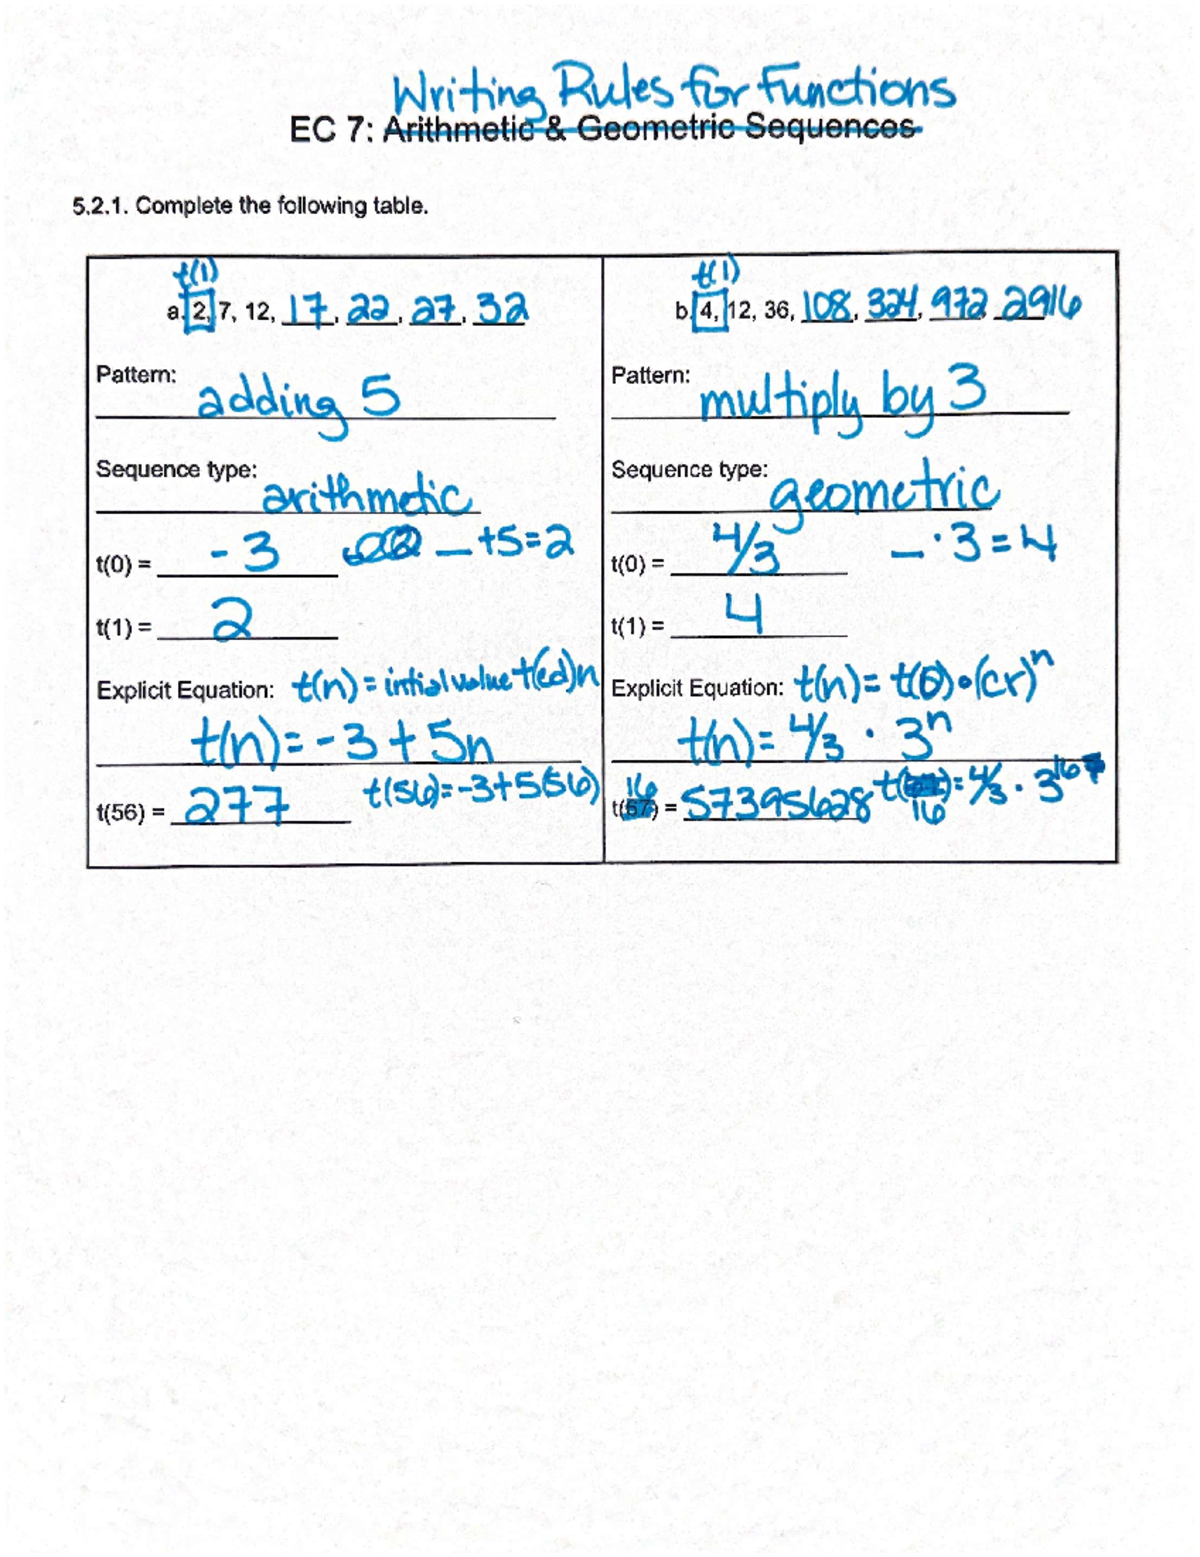 Writing Rules for Functions
EC 7: Arithmetic & Geometric Sequences
5.2.1. Complete the following table.
t(1)
a. 2, 7, 12, 17, 22, 27, 32
Pattern: adding 5
Sequence type: arithmetic
t(0) = -3 _ +5=2
t(1) = 2
Explicit Equation: t(n) = intial value + (cd)n
t(n) = -3 + 5n
t(56) = 277 t(56)=-3+5(56)
t(1)
b. 4, 12, 36, 108, 324, 972 2916
Pattern: multiply by 3
Sequence type: geometric
t(0) = 4/3 _ · 3 = 4
t(1) = 4
Explicit Equation: t(n) = t(0) • (cr)^n
t(n) = 4/3 · 3^n
16
t(57) = 57395628 t( ) = 4/3 · 3^16
16